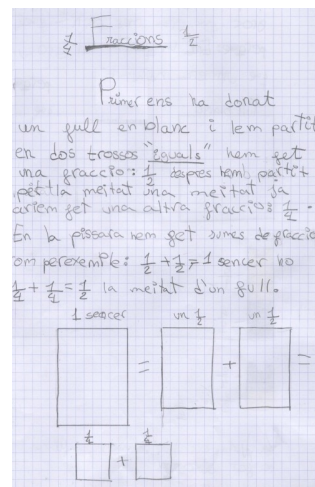 1/4 Fraccions 1/2
Primer ens ha donat
un full en blanc i lem partit
en dos trossos "iguals" hem fet
una fraccio: 1/2 despres hem partit
la meitat una meitat ja
ariem fet una altra fraccio: 1/4.
En la pissara hem fet sumes de fraccio
om perexemple: 1/2 + 1/2 = 1 sencer ho
1/4 + 1/4 = 1/2 la meitat d'un full.
1 sencer un 1/2 un 1/2
= + =
1/4 1/4
+